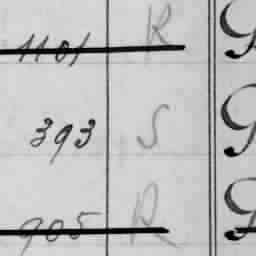 1101 R G
393 S G
905 R G